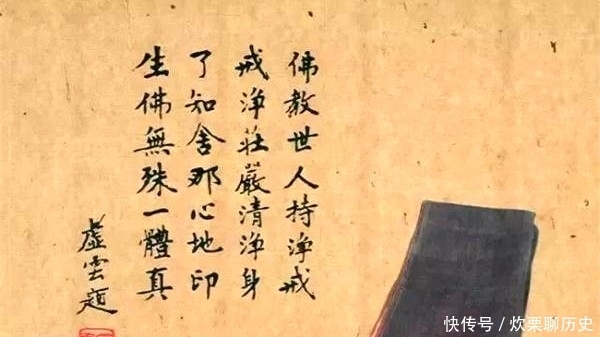 佛教世人持淨戒
戒淨莊嚴清淨身
了知舍那心地印
生佛無殊一體真
虛雲題
快传号／炊栗聊历史